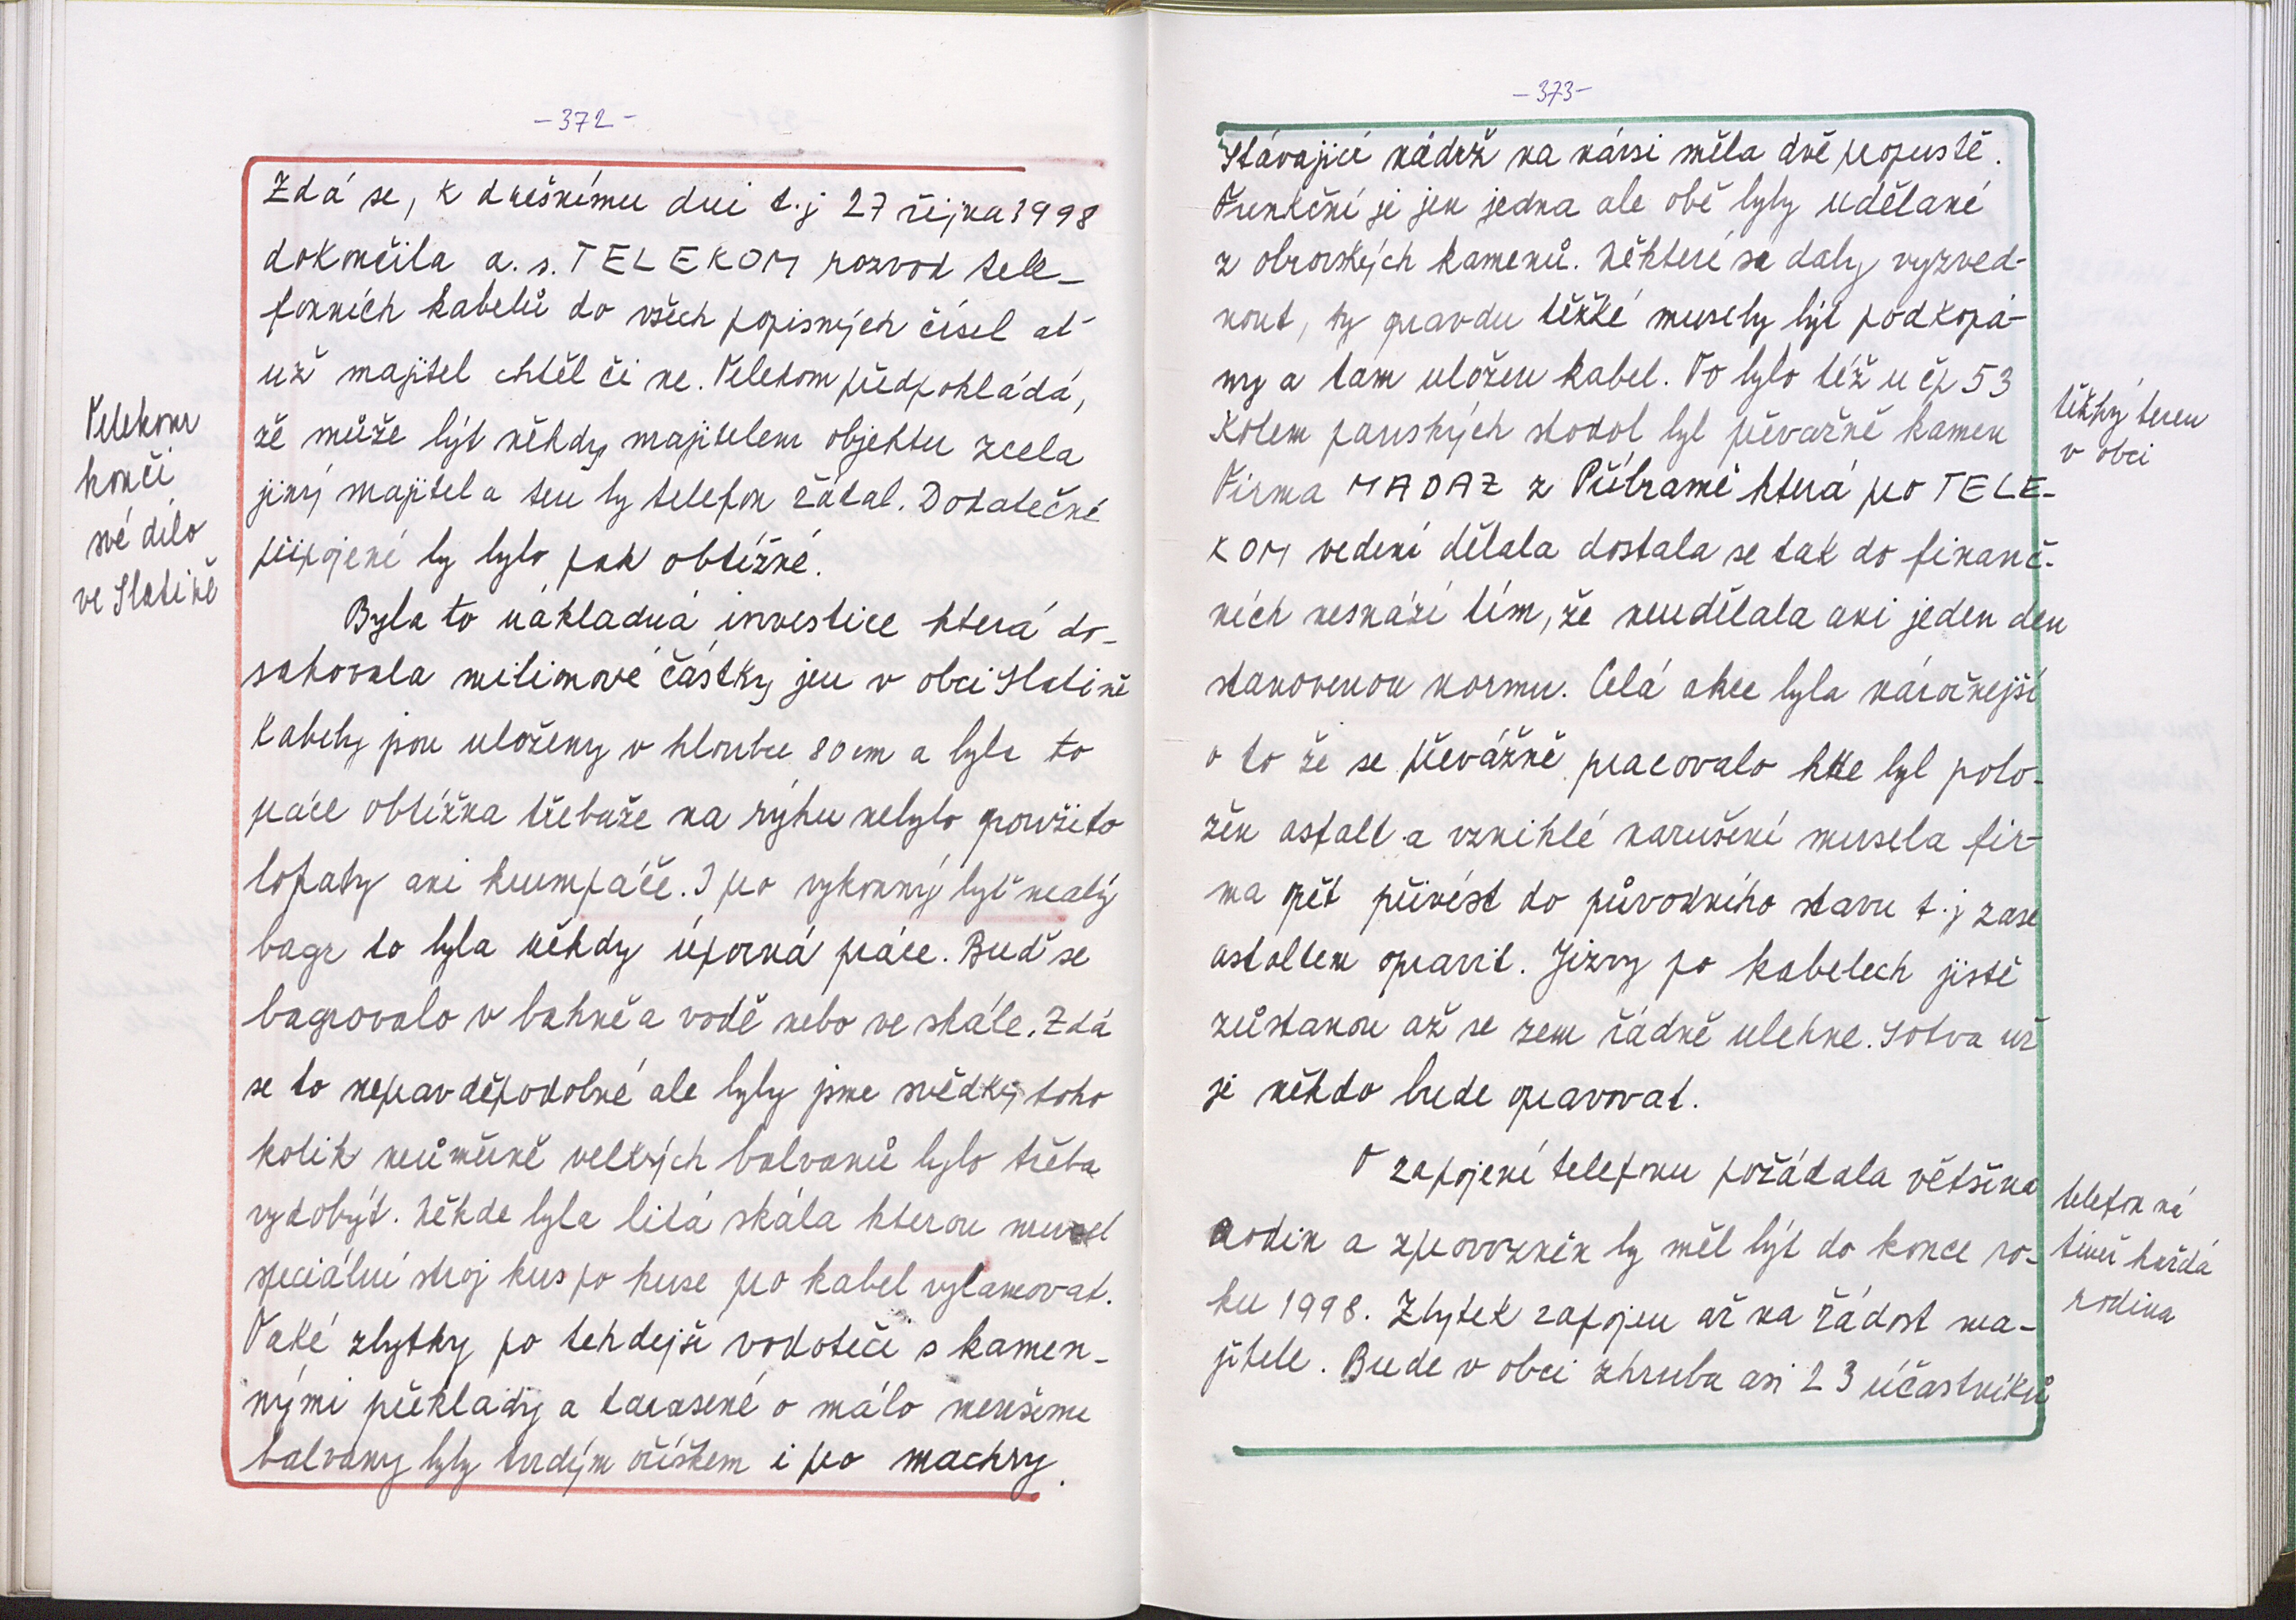 -372-
Zdá se, k dnešnímu dni t.j 27 října 1998
dokončila a.s. TELEKOM rozvod tele-
fonních kabelů do všech popisných čísel ať
už majitel chtěl či ne. Telekom předpokládá,
že může být někdy majitelem objektu zcela
jiný majitel a ten by telefon žádal. Dodatečné
připojení by bylo pak obtížné.
Telekom
končí
své dílo
ve Slatině
Byla to nákladná investice která do-
sahovala milionové částky jen v obci Slatině
Kabely jsou uloženy v hloubce 80 cm a byla to
práce obtížná třebaže na rýhu nebylo použito
lopaty ani krumpáče. I pro výkonný byť malý
bagr to byla někdy úporná práce. Buď se
bagrovalo v bahně a vodě nebo ve skále. Zdá
se to nepravděpodobné ale byly jsme svědky toho
kolik neúměrně velkých balvanů bylo třeba
vydobýt. Někde byla litá skála kterou musel
speciální stroj kus po kuse pro kabel vylamovat.
Také zbytky po tehdejší vodoteči s kamen-
nými překlady a tarasené o málo menšími
balvany byly tvrdým oříškem i pro machry.
-373-
Stávající nádrž na návsi měla dvě propustě.
Funkční je jen jedna ale obě byly udělané
z obrovských kamenů. Některé se daly vyzved-
nout, ty opravdu těžké musely být podkopá-
ny a tam uložen kabel. To bylo též u čp 53
Kolem panských stodol byl převážně kamen
Firma MADAZ z Příbramě která pro TELE-
KOM vedení dělala dostala se tak do finanč-
ních nesnází tím, že neudělala ani jeden den
stanovenou normu. Celá akce byla náročnější
o to že se převážně pracovalo kde byl polo-
žen asfalt a vzniklé narušení musela fir-
ma opět přivést do původního stavu t.j zase
asfaltem opravit. Jizvy po kabelech jistě
zůstanou až se zem řádně ulehne. Sotva už
je někdo bude opravovat.
těžký teren
v obci
O zapojení telefonu požádala většina
rodin a zprovozněn by měl být do konce ro-
ku 1998. Zbytek zapojen až na žádost ma-
jitele. Bude v obci zhruba asi 23 účastníků
telefon má
téměř každá
rodina